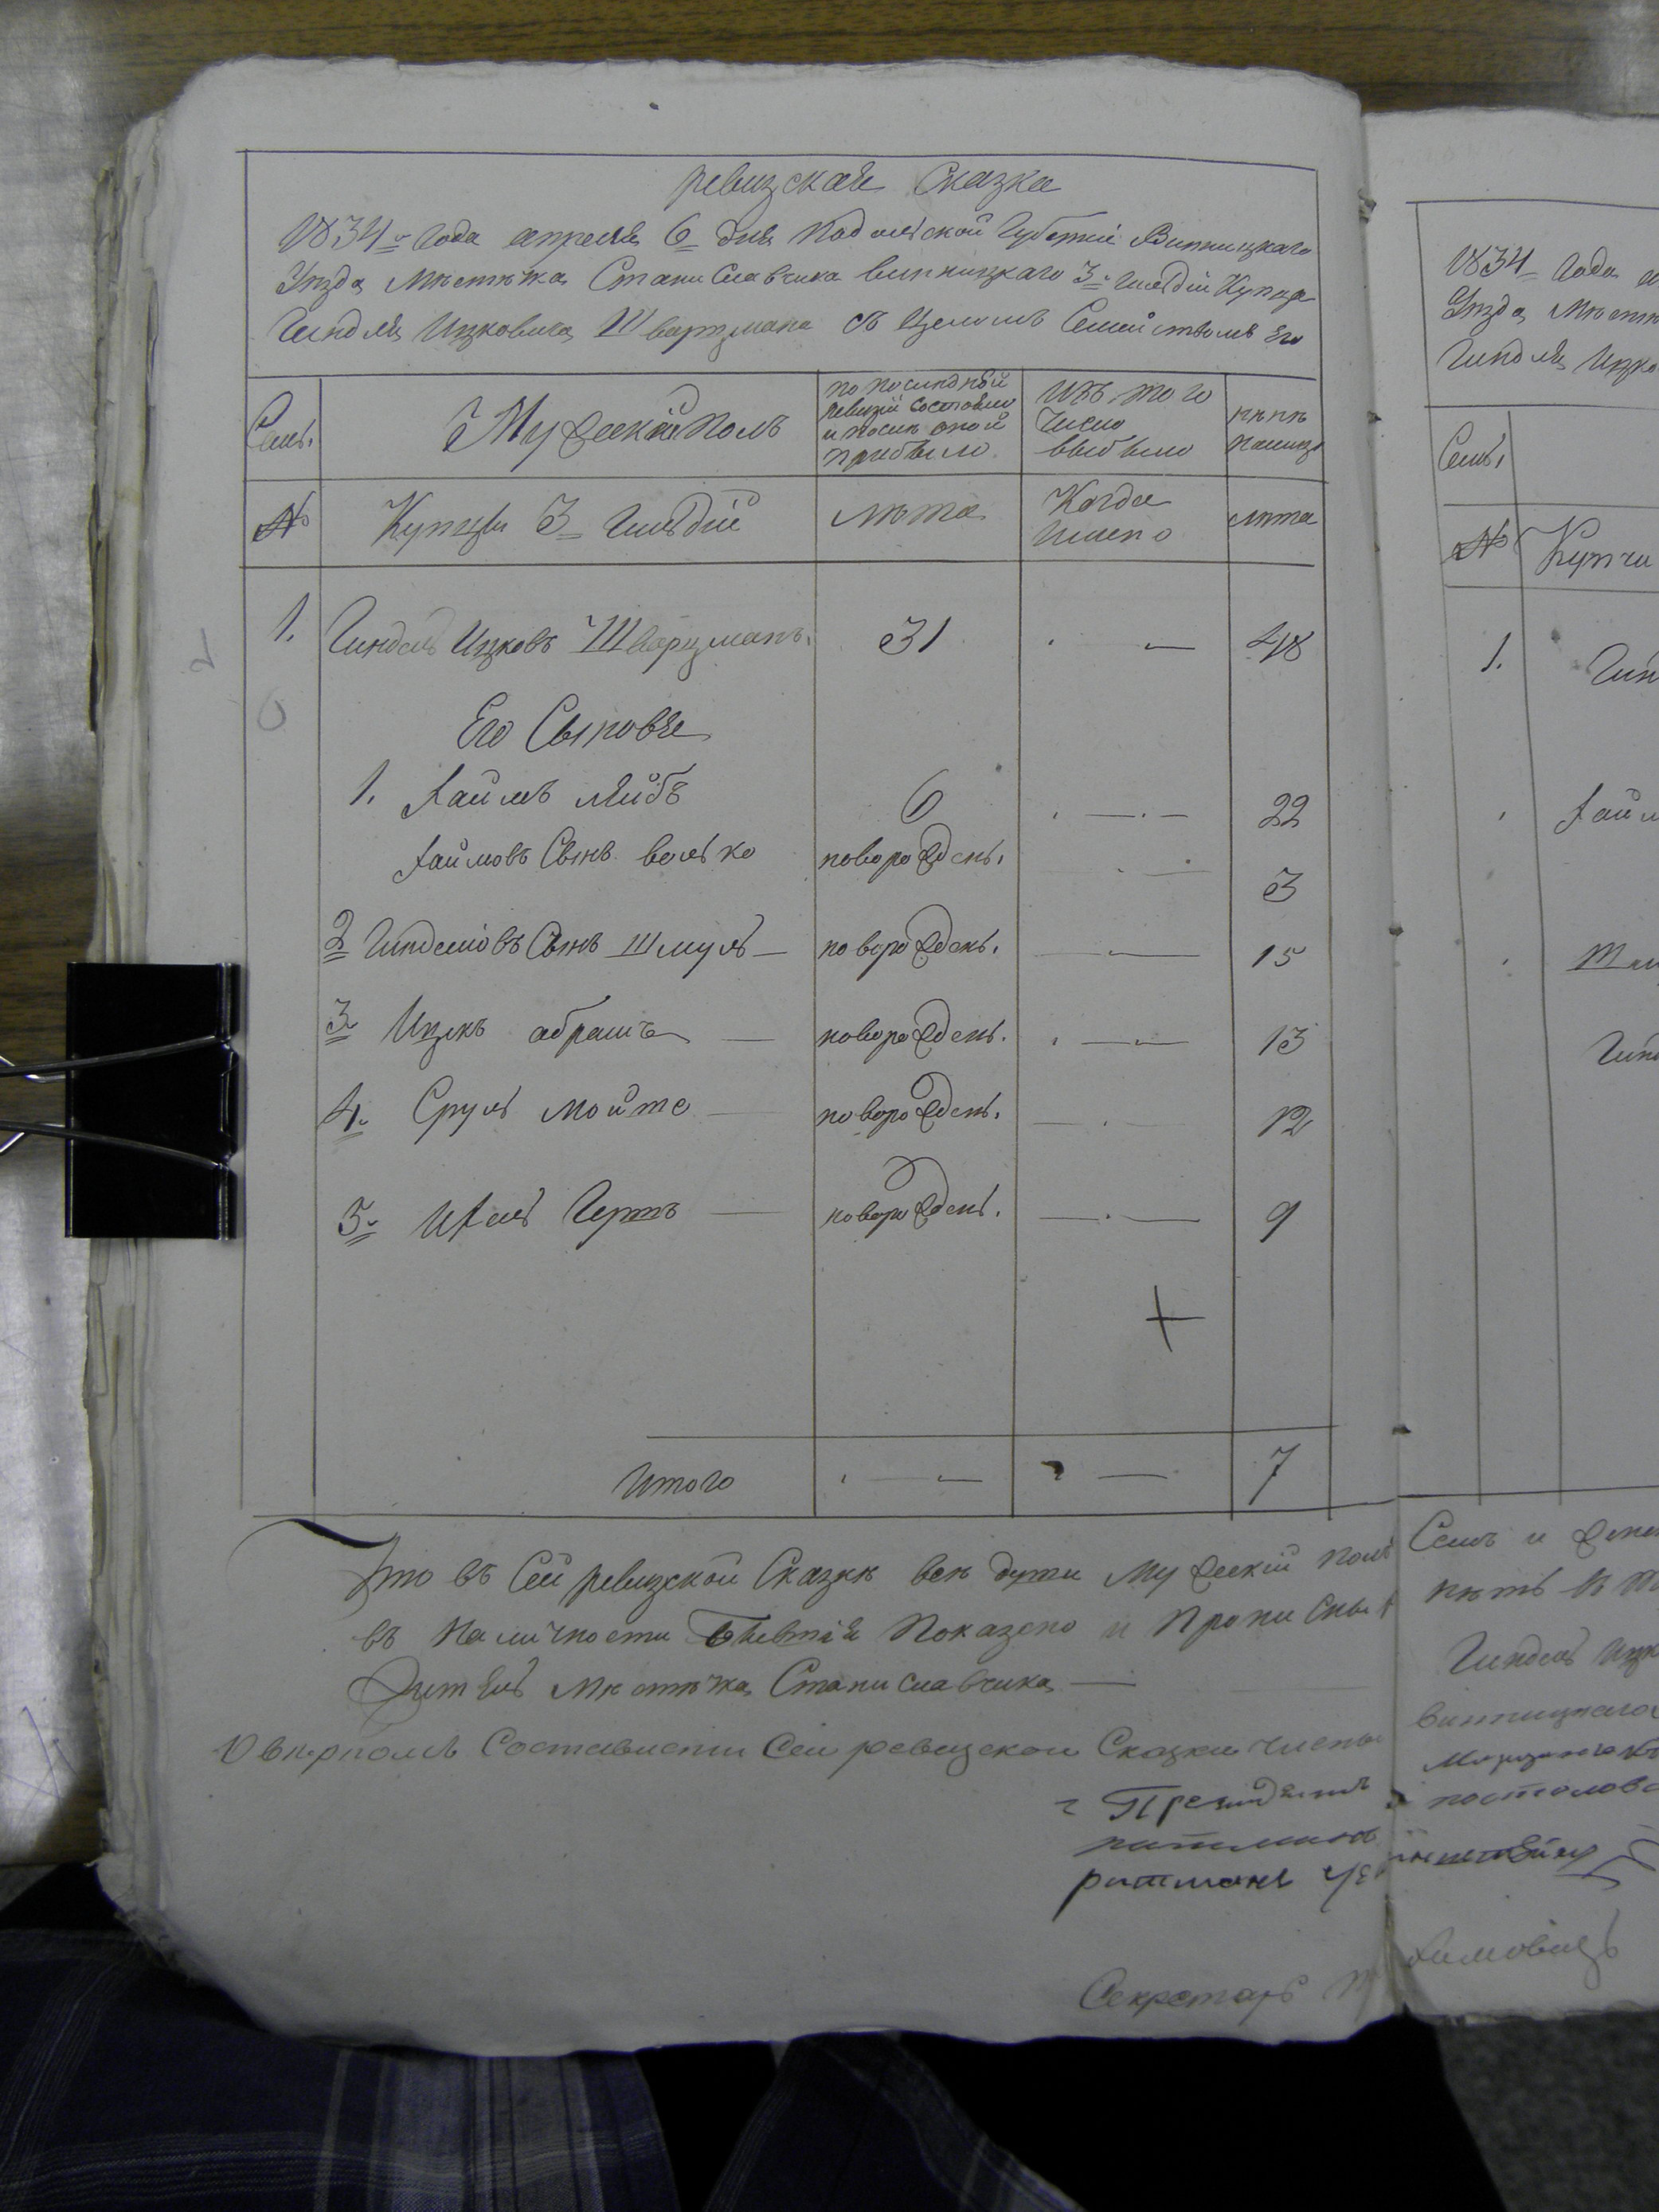 ревизская Сказка
1834го Года апреля 6 дня Подольской Губернии Винницкаго
Уезда Мѣстѣчка Станиславчика винницкаго 3й Гильдіи Купца
Гинделя Ицковича Шварцмана съ Целымъ Семействомъ Его
Сем.
Мужескій Полъ
по последней
ревизіи состояло
и после оной
прибыло
Изъ того
Число
выбыло
ныне
налицо
№
Купцы 3 Гильдіи
лѣта
Когда
Имено
лѣта
1. Гиндель Ицковъ Шварцманъ. 31 48
Его Сыновья
1. Хаимъ лейбъ 6 22
Хаимовъ Сынъ волько новорожденъ. 3
2 Гинделювъ Сынъ Шмуль новорожденъ. 15
3. Ицекъ абрамъ новорожденъ. 13
4. Сруль мойше новорожденъ. 12
5. Ихель Герш новорожденъ. 9
Итого 7
Что въ Сей ревизской Сказкѣ все души Мужескій полъ
въ Наличности Показано и
Житель Мѣстѣчка Станиславчика
О вѣрномъ Составлении Сей ревизской Сказки
Президентъ
ратманъ
ратманъ
Секретарь
1834 Года
Уезда
Гинделя Ицко
Сем.
№ Купчи
1. Гин
Хаим
Гин
Семъ и
нѣтъ
Гиндель Ицк
винницкаго